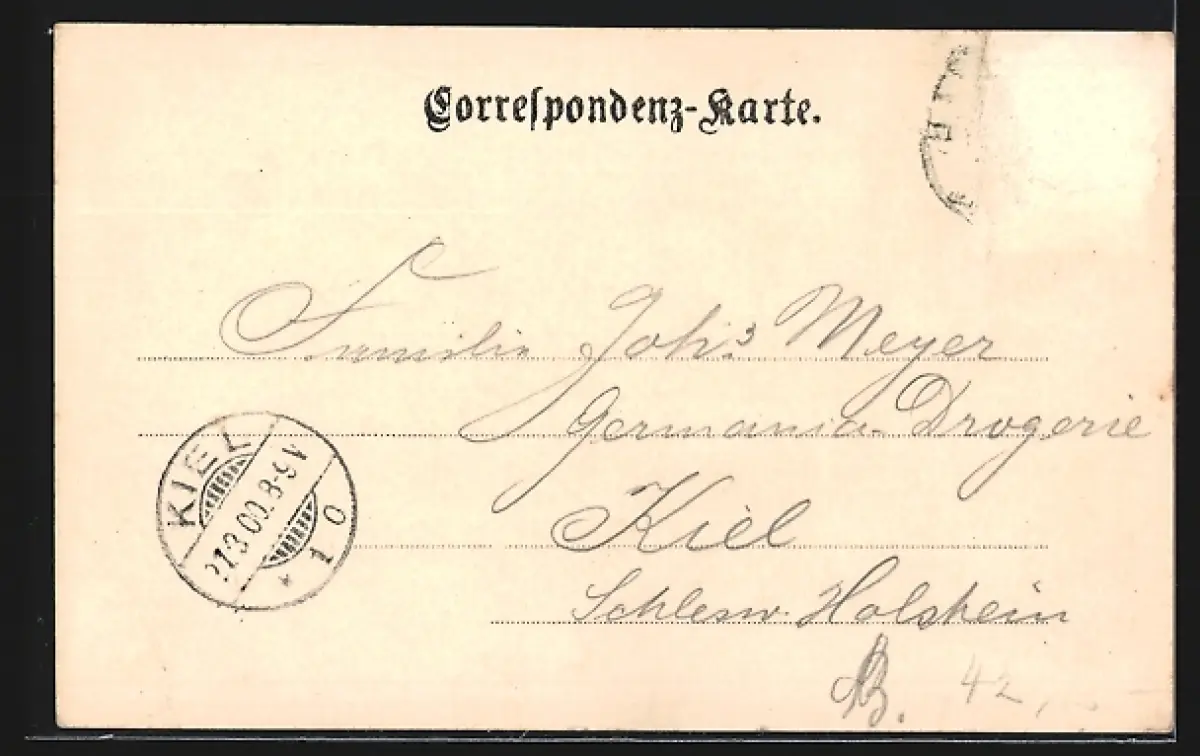 Correspondenz-Karte.
Familie Johs Meyer
Germania-Drogerie
Kiel
Schlesw. Holstein
KIEL
21.3.00.8-9V
* 1 0
42